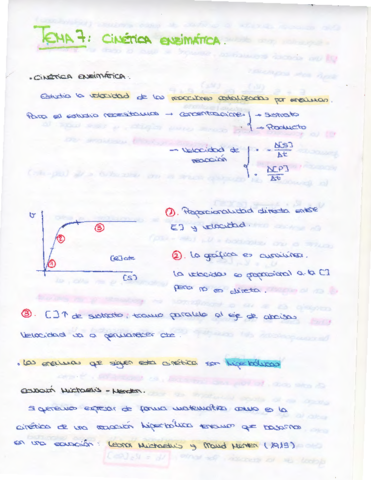 TEMA 7: CINÉTICA ENZIMÁTICA.
• CINÉTICA ENZIMÁTICA.
Estudia la velocidad de las reacciones catalizadas por enzimas.
Para su estudio necesitamos → concentraciones → Sustrato
→ Producto
→ Velocidad de reacción
- Δ[S]/Δt
Δ[P]/Δt
V
[E] cte
[S]
① ② ③
①. Proporcionalidad directa entre
[ ] y velocidad
②. La gráfica es curvilínea.
La velocidad es proporcional a la [ ]
pero no es directa.
③. [ ]↑ de sustrato, tramo paralelo al eje de abcisas
Velocidad va a permanecer cte
• Las enzimas que siguen esta cinética son hipérbolicas
Ecuación Michaelis - Menten.
Si queremos expresar de forma matemática como es la
cinética de una ecuación hiperbólica tenemos que basarnos
en una ecuación: Leonor Michaelis y Maud Menten (1913)